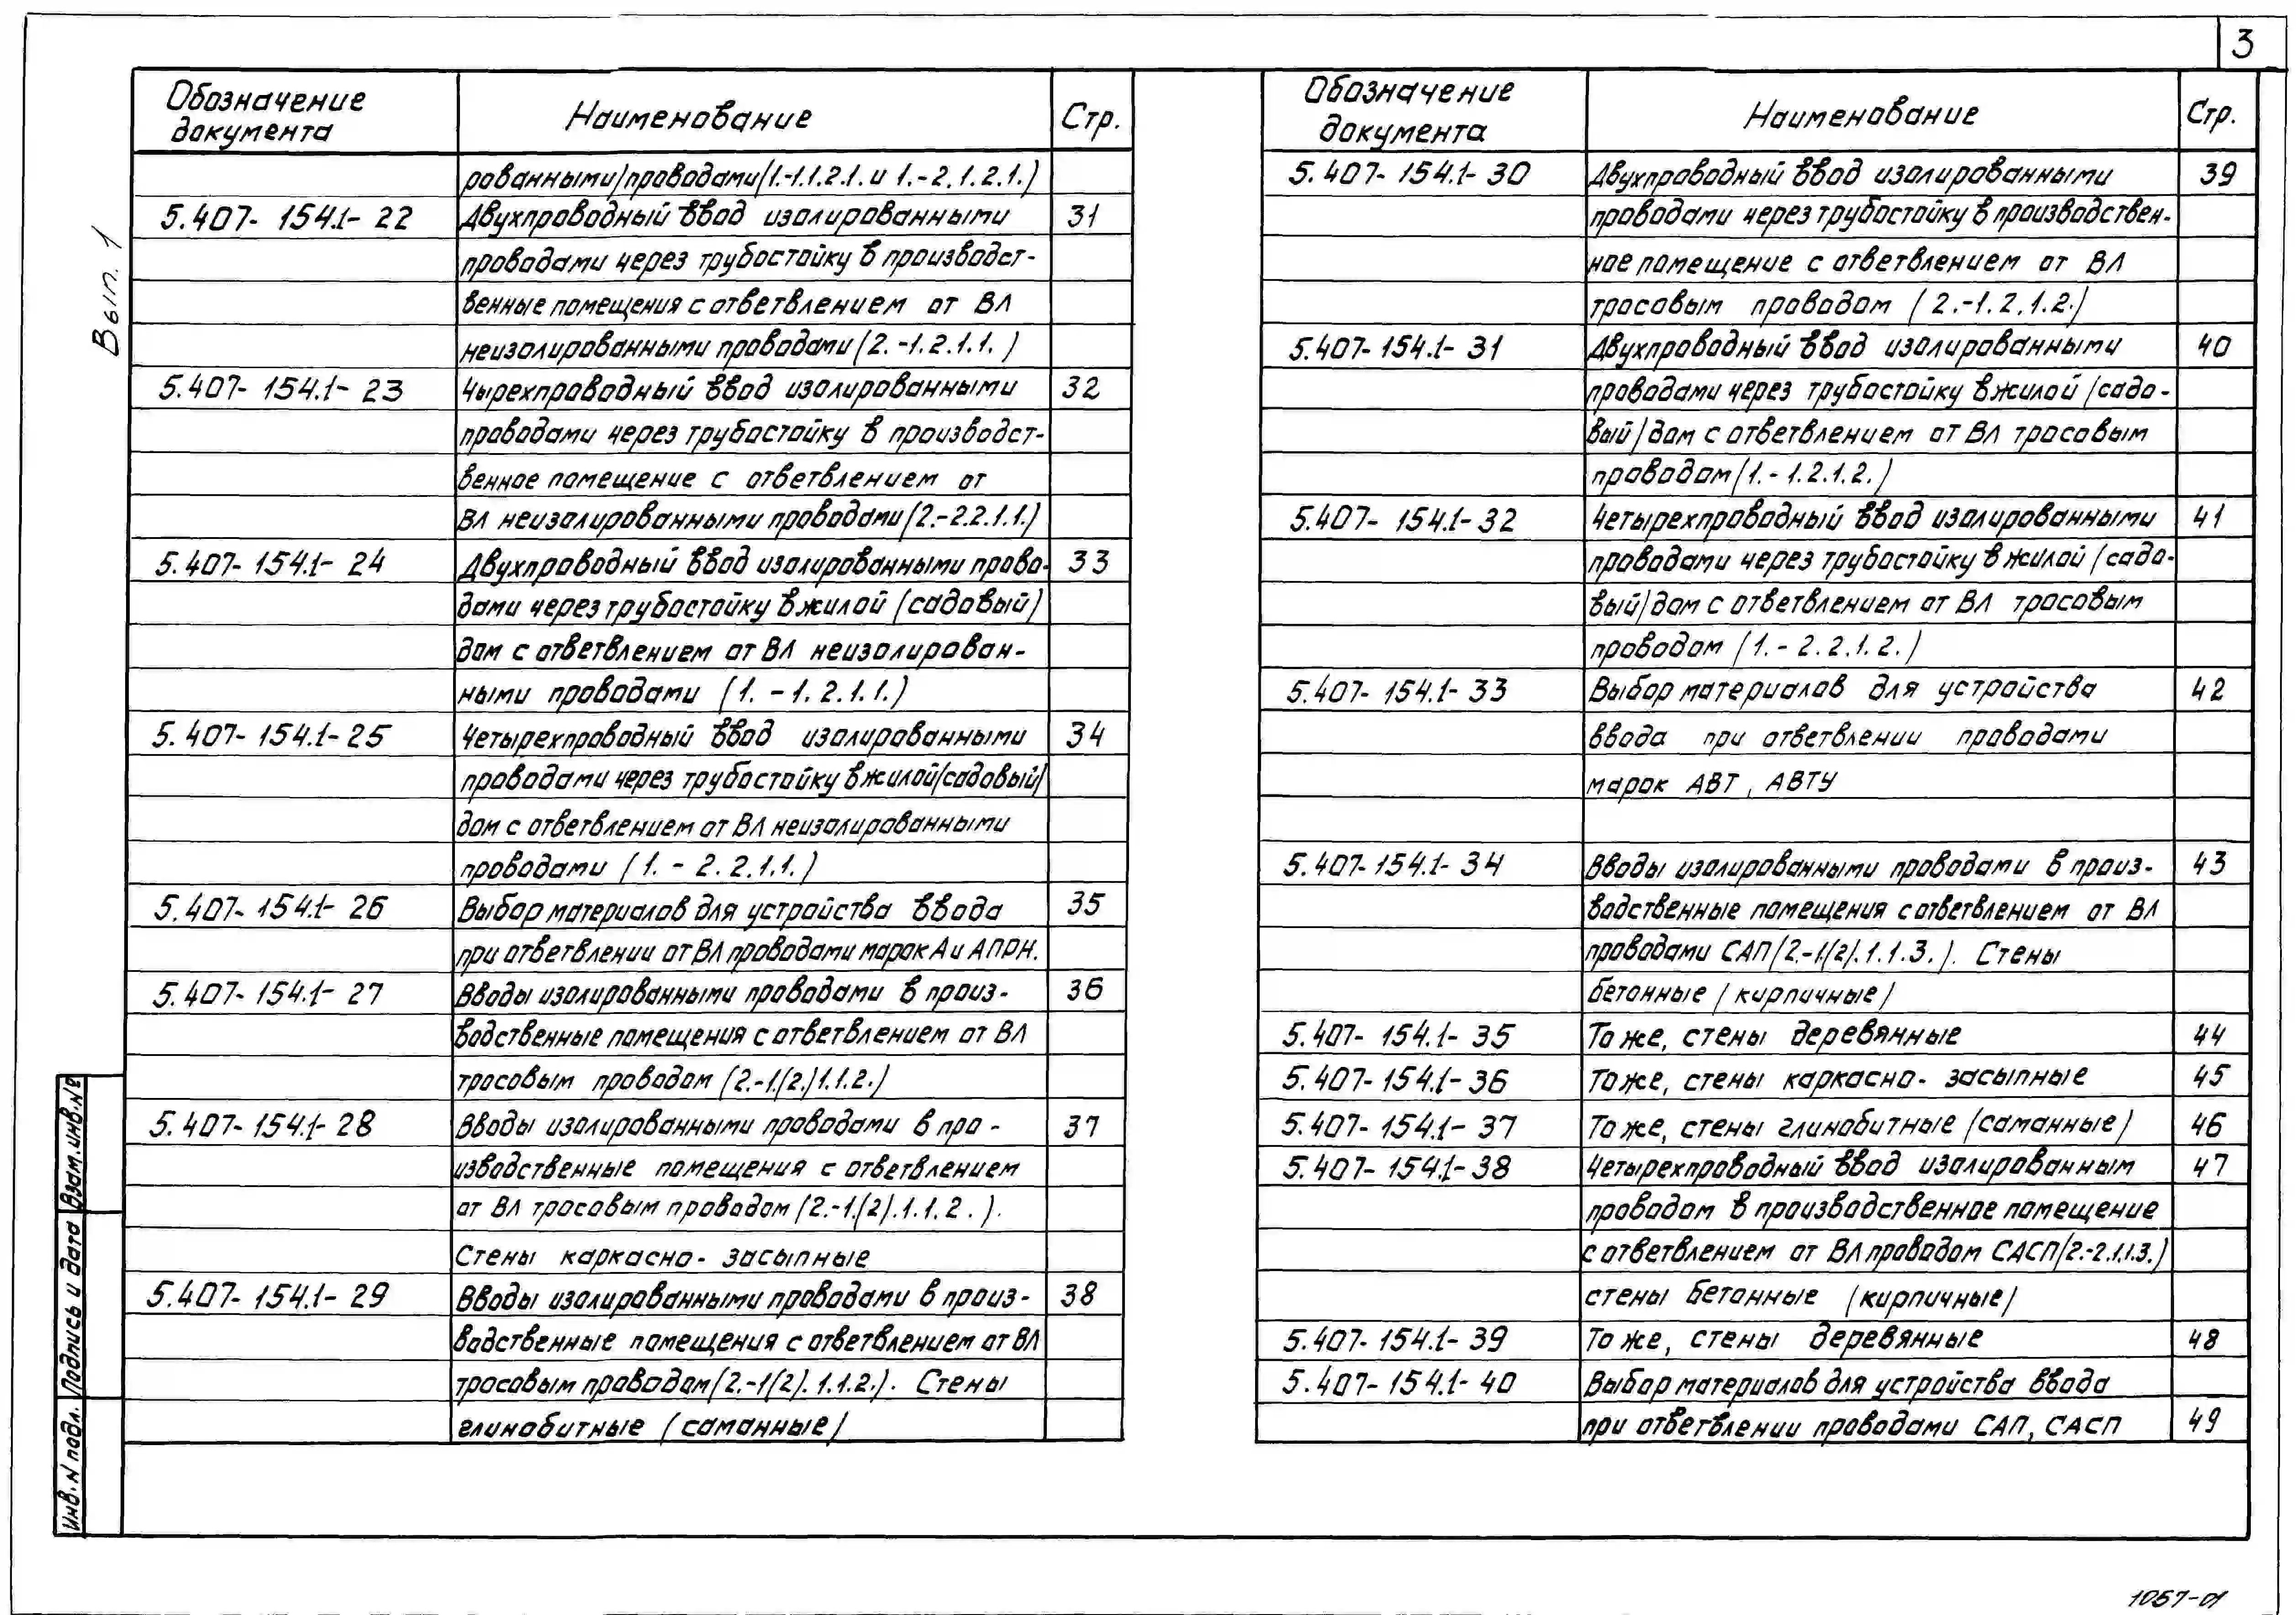 3
Вып. 1
Обозначение документа Наименование Стр.
рованными/проводами(1.-1.1.2.1. и 1.-2.1.2.1.)
5.407-154.1-22 Двухпроводный ввод изолированными 31
проводами через трубостойку в производст-
венные помещения с ответвлением от ВЛ
неизолированными проводами (2.-1.2.1.1.)
5.407-154.1-23 Чырехпроводный ввод изолированными 32
проводами через трубостойку в производст-
венное помещение с ответвлением от
ВЛ неизолированными проводами (2.-2.2.1.1.)
5.407-154.1-24 Двухпроводный ввод изолированными прово- 33
дами через трубостойку в жилой (садовый)
дом с ответвлением от ВЛ неизолирован-
ными проводами (1.-1.2.1.1.)
5.407-154.1-25 Четырехпроводный ввод изолированными 34
проводами через трубостойку в жилой/садовый/
дом с ответвлением от ВЛ неизолированными
проводами (1.-2.2.1.1.)
5.407-154.1-26 Выбор материалов для устройства ввода 35
при ответвлении от ВЛ проводами марок А и АПРН.
5.407-154.1-27 Вводы изолированными проводами в произ- 36
водственные помещения с ответвлением от ВЛ
тросовым проводом (2.-1.(2.)1.1.2.)
5.407-154.1-28 Вводы изолированными проводами в про- 37
изводственные помещения с ответвлением
от ВЛ тросовым проводом (2.-1.(2).1.1.2.).
Стены каркасно-засыпные
5.407-154.1-29 Вводы изолированными проводами в произ- 38
водственные помещения с ответвлением от ВЛ
тросовым проводом (2.-1(2).1.1.2.). Стены
глинобитные (саманные)
Обозначение документа Наименование Стр.
5.407-154.1-30 Двухпроводный ввод изолированными 39
проводами через трубостойку в производствен-
ное помещение с ответвлением от ВЛ
тросовым проводом (2.-1.2.1.2.)
5.407-154.1-31 Двухпроводный ввод изолированными 40
проводами через трубостойку в жилой /садо-
вый/ дом с ответвлением от ВЛ тросовым
проводом (1.-1.2.1.2.)
5.407-154.1-32 Четырехпроводный ввод изолированными 41
проводами через трубостойку в жилой (садо-
вый) дом с ответвлением от ВЛ тросовым
проводом (1.-2.2.1.2.)
5.407-154.1-33 Выбор материалов для устройства 42
ввода при ответвлении проводами
марок АВТ, АВТУ
5.407-154.1-34 Вводы изолированными проводами в произ- 43
водственные помещения с ответвлением от ВЛ
проводами САП (2.-1.(2).1.1.3.). Стены
бетонные (кирпичные)
5.407-154.1-35 То же, стены деревянные 44
5.407-154.1-36 То же, стены каркасно-засыпные 45
5.407-154.1-37 То же, стены глинобитные (саманные) 46
5.407-154.1-38 Четырехпроводный ввод изолированным 47
проводом в производственное помещение
с ответвлением от ВЛ проводом САСП (2.-2.1.1.3.)
стены бетонные (кирпичные)
5.407-154.1-39 То же, стены деревянные 48
5.407-154.1-40 Выбор материалов для устройства ввода
при ответвлении проводами САП, САСП 49
Инв. N подл. Подпись и дата Взам. инв. №
1057-01